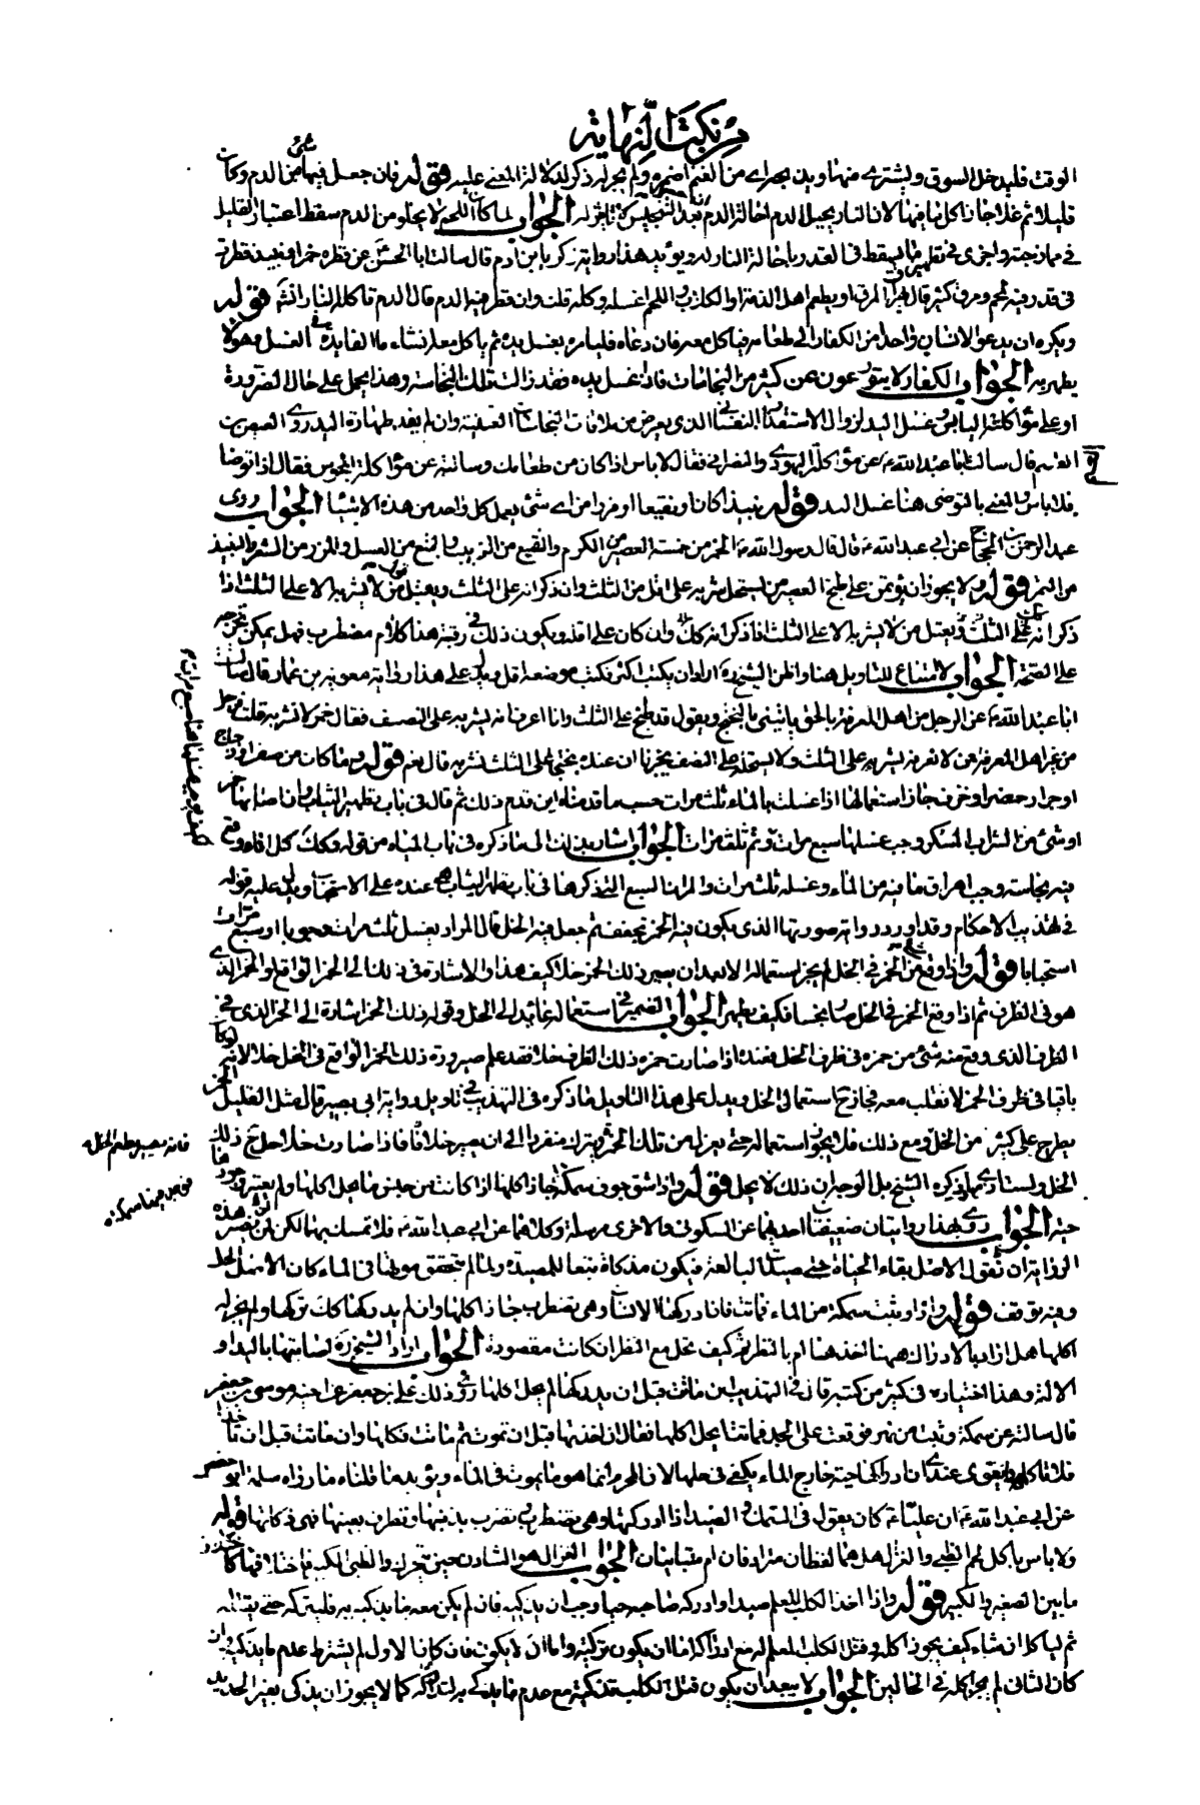 من نكت النهاية
الوقت فليدخل السوق ويشتري منها وبين يجزاي من الغنم ولم يجز له ذكر لدلالة المعنى عليه قوله فان جعل فيها شئ من الدم وكان
قليلا ثم غلا جاز اكل ما فيها لان النار تحيل الدم احالة الدم بعد التنجيس لا تأثير له الجواب لما كان اللحم لا يخلو من الدم سقط اعتبار القليل
في ممازجته واجرى في تطهير ما يسقط في القدر باحالة النار له ويؤيد هذا رواية زكريا بن ادم قال سالت ابا الحسن عن قطرة خمر او نبيذ قطرت
في قدر فيه لحم ومرق كثير قال يهراق المرق او يطعم اهل الذمة او الكلاب واللحم اغسله وكله قلت وان قطر فيه الدم قال الدم تاكله النار انشاء قوله
ويكره ان يدعو الانسان واحدا من الكفار الى طعامه فياكل معه فان دعاه فليامره بغسل يده ثم ياكل معه ان شاء ما الفايدة في الغسل وهو لا
يطهر به الجواب الكفار لا يتورعون عن كثير من النجاسات فاذا غسل يده فقد زالت تلك النجاسة وهذا يحمل على حال الضرورة
او على مؤاكلة اليابس وغسل اليد لزوال الاستقذار النفساني الذي يعرض من ملاقات النجاسات العينية وان لم يفد طهارة اليد روى العيص بن
القسم قال سالت ابا عبد الله ع عن مؤاكلة اليهودي والنصراني فقال لا باس اذا كان من طعامك وسالته عن مؤاكلة المجوسي فقال اذا توضا
فلا باس والمعني بالتوضي هنا غسل اليد قوله نبيذا كان او نقيعا او مزرا من اي شئ يعمل كل واحد من هذه الاشياء الجواب روى
عبد الرحمن بن الحجاج عن ابي عبد الله ع قال قال رسول الله ص الخمر من خمسة العصير من الكرم والنقيع من الزبيب والبتع من العسل والمزر من الشعير والنبيذ
من التمر قوله ولا يجوز ان يؤتمن على طبخ العصير من يستحل شربه على اقل من الثلث وان ذكر انه على الثلث ويقبل من لا يشربه الا على الثلث اذا
ذكر انه على الثلث ويقبل من لا يشربه الا على الثلث اذا ذكر انه كك وان كان على اقله ويكون ذلك في رقبته هذا كلام مضطرب فهل يمكن تخريجه
على الصحة الجواب لا امتناع للتاويل هنا واظن الشيخ ره اراد ان يكتب اكثر فكتب موضعه اقل ويدل على هذا رواية معوية بن عمار قال سالت
ابا عبد الله ع عن الرجل من اهل المعرفة بالحق ياتيني بالبختج ويقول قد طبخ على الثلث وانا اعرف انه يشربه على النصف فقال خمر لا تشربه قلت فرجل
من غير اهل المعرفة ممن لا نعرفه يشربه على الثلث ولا يستحله على النصف يخبرنا ان عنده بختجا على الثلث نشربه قال نعم قوله وما كان من صفر او زجاج
او جرار خضر او خزف جاز استعمالها اذا غسلت بالماء ثلث مرات حسب ما قدمناه اين قدم ذلك ثم قال في باب تطهير الثياب وان اصابها خمر
او شئ من الشراب المسكر وجب غسلها سبع مرات وثم ثلث مرات الجواب اشار بذلك الى ما ذكره في باب المياه من قوله وكك كل اناء وقع
فيه نجاسة وجب اهراق ما فيه من الماء وغسله ثلث مرات والمراد بالسبع التي ذكرها في باب تطهير الثياب هي عنده على الاستحباب ويدل عليه قوله
في تهذيب الاحكام وقد اورد رواية صورتها الذي يكون فيه الخمر يجفف ثم جعل فيه الخل قال المراد يغسل ثلث مرات وجوبا او سبع مرات
استحبابا قوله واذا وقع شئ من الخمر في الخل لم يجز استعماله الا بعد ان يصير ذلك الخمر خلا كيف هذا والاشارة في ذلك الى الخمر الواقع او الخمر الذي
هو في الظرف ثم اذا وقع الخمر في الخل صار نجسا فكيف يطهر الجواب الضمير في استعماله عائد الى الخل وقوله ذلك الخمر اشارة الى الخمر الذي في
الظرف الذي وقع منه شئ من خمره في ظرف الخل فعنده اذا صارت خمرة ذلك الظرف خلا فقد علم صيرورة ذلك الخمر الواقع في الخل خلا لانه لو كان
باقيا في ظرف الخمر لانقلب معه فجاز ح استعمال الخل ويدل على هذا التاويل ما ذكره في التهذيب في تاويل رواية ابي بصير قال مثل القليل من الخمر
يطرح على كثير من الخل ومع ذلك فلا يجوز استعماله حتى يعزل من تلك الخمر ويترك منفردا الى ان يصير خلا فاذا صارت خلا حل ح ذلك
الخل ولست ارى بما يذكره الشيخ بل الوجه ان ذلك لا يحل قوله واذا شق جوف سمكة جاز اكلها اذا كانت من جنس ما يحل اكلها ولم يعتبر وجود
حية الجواب روى بهذا روايتان ضعيفتان احديهما عن السكوني والاخرى مرسلة وكلاهما عن ابي عبد الله ع فلا تمسك بهما لكن لمن ينصر هذه
الرواية ان نقول الاصل بقاء الحياة حتى صيدت البالعة فيكون مذكاة تبعا للصيد ولما لم يتحقق موتها في الماء كان الاصل الحل
وفيه توقف قوله واذا وثبت سمكة من الماء فماتت فان ادركها الانسان وهي تضطرب جاز اكلها وان لم يدركها كك تركها ولم يجز له
اكلها هل اراد بالادراك ههنا اخذها ام بالنظر كيف تحل مع النظر ان كانت مقصودة الجواب اراد الشيخ ره اصابتها باليد او
الالة وهذا اختياره في كثير من كتبه قال في التهذيب ان ماتت قبل ان يدركها لم يحل اكلها روى ذلك علي بن جعفر عن اخيه موسى بن جعفر
قال سالته عن سمكة وثبت من نهر فوقعت على الجد فماتت ايحل اكلها فقال ان اخذتها قبل ان تموت ثم ماتت فكلها وان ماتت قبل ان تاخذها
فلا تاكلها ويقوى عندي ان ادراكها حية خارج الماء يكفي في حلها لان المحرم انما هو ما يموت في الماء ويؤيد ما قلناه ما رواه سلمة ابو حفص
عن ابي عبد الله ع ان عليا ع كان يقول في السمك والصيد اذا ادركتها وهي تضطرب وتضرب بذنبها وتطرف بعينها فهي ذكاتها قوله
ولا باس باكل لحم الظبي والغزال هل هما لفظان مترادفان ام متباينان الجواب الغزال هو الشادن حين يتحرك والظبي الكبير فما اختلافهما كا
ما بين الصغير والكبير قوله واذا اخذ الكلب المعلم صيدا وادركه صاحبه حيا وجب ان يذكيه فان لم يكن معه ما يذكيه به فليتركه حتى يقتله
ثم لياكل ان شاء كيف يجوز اكله وقتل الكلب المعلم له مع ادراكه اما ان يكون تذكية واما ان لا يكون فان كان الاول لم يشترط عدم ما يذكيه وان
كان الثاني لم يجز اكله في الحالين الجواب لا يبعد ان يكون قتل الكلب تذكية مع عدم ما يذكى به لتداركه كما لا يجوز ان يذكى بغير الحديد